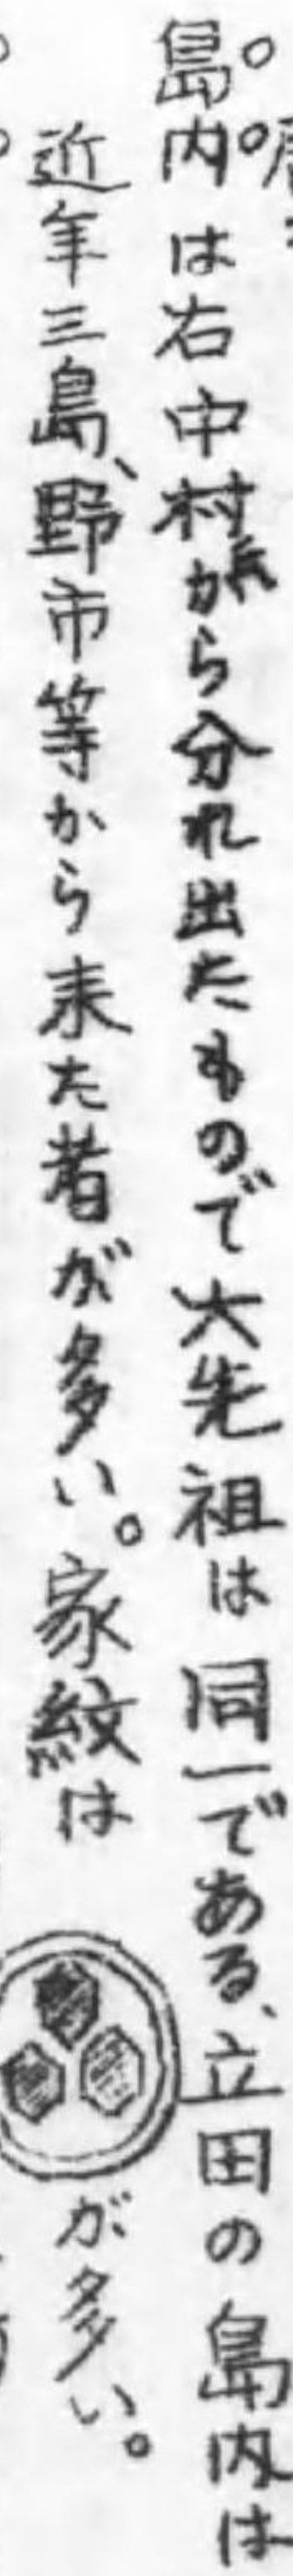 島内は右中村氏から分れ出たもので大先祖は同一である、立田の島内は
近年三島、野市等から来た者が多い。家紋は が多い。